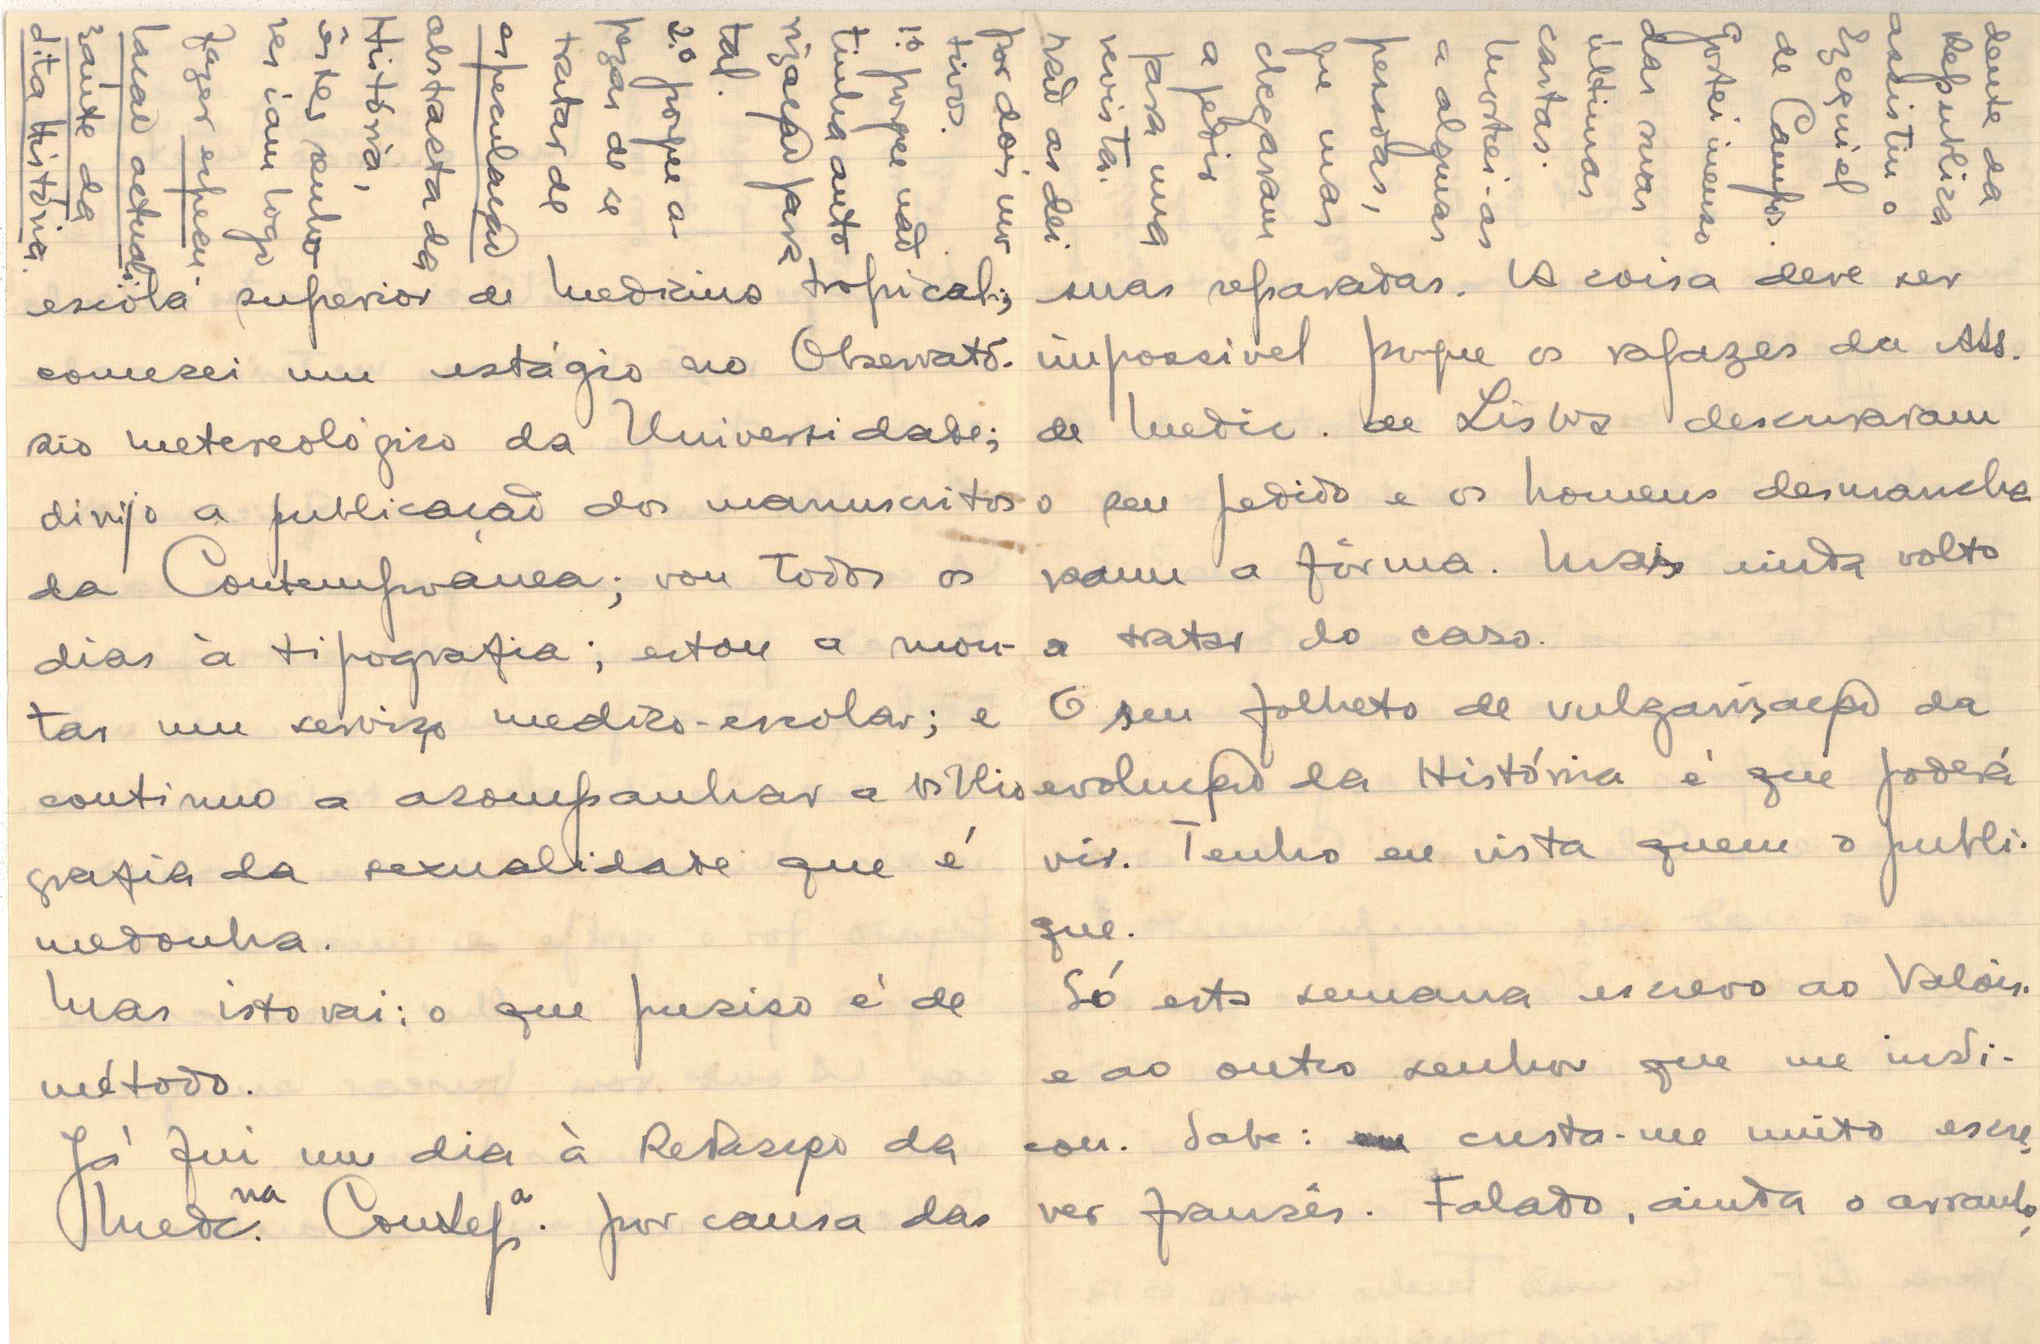 escola superior de medicina tropical;
comecei um estágio no Observató-
rio metereológico da Universidade;
dirijo a publicação dos manuscritos
da Contemporânea; vou todos os
dias à tipografia; estou a mon-
tar um serviço medico-escolar; e
continuo a acompanhar a biblio
grafia da sexualidade que é
medonha.
Mas isto vai: o que preciso é de
método.
Já fui um dia à Redacção da
Medc.na Contepa. por causa das
suas separadas. A coisa deve ser
impossivel porque os rapazes da Ass.
de Medic. de Lisboa descuraram
o seu pedido e os homens desmancha
ram a fôrma. Mas inda volto
a tratar do caso.
O seu folheto de vulgarização da
evolução da História é que poderá
vir. Tenho em vista quem o publi-
que.
Só esta semana escrevo ao Valois.
e ao outro senhor que me indi-
cou. Sabe: custa-me muito escre,
ver francês. Falado, ainda o arranho,
dente da
Republica
assistiu o
Ezequiel
de Campos.
Gostei imenso
das suas
últimas
cartas.
Mostrei-as
a algumas
pessoas,
que mas
chegaram
a pedir
para uma
revista.
Não as dei
por dois mo
tivos.
1.º porque não
tinha auto
rização para
tal.
2.º porque a-
pezar de se
tratar de
especulação
abstracta da
História,
êstes senho
res iam logo
fazer especu-
lação actuali
zante da
dita História.